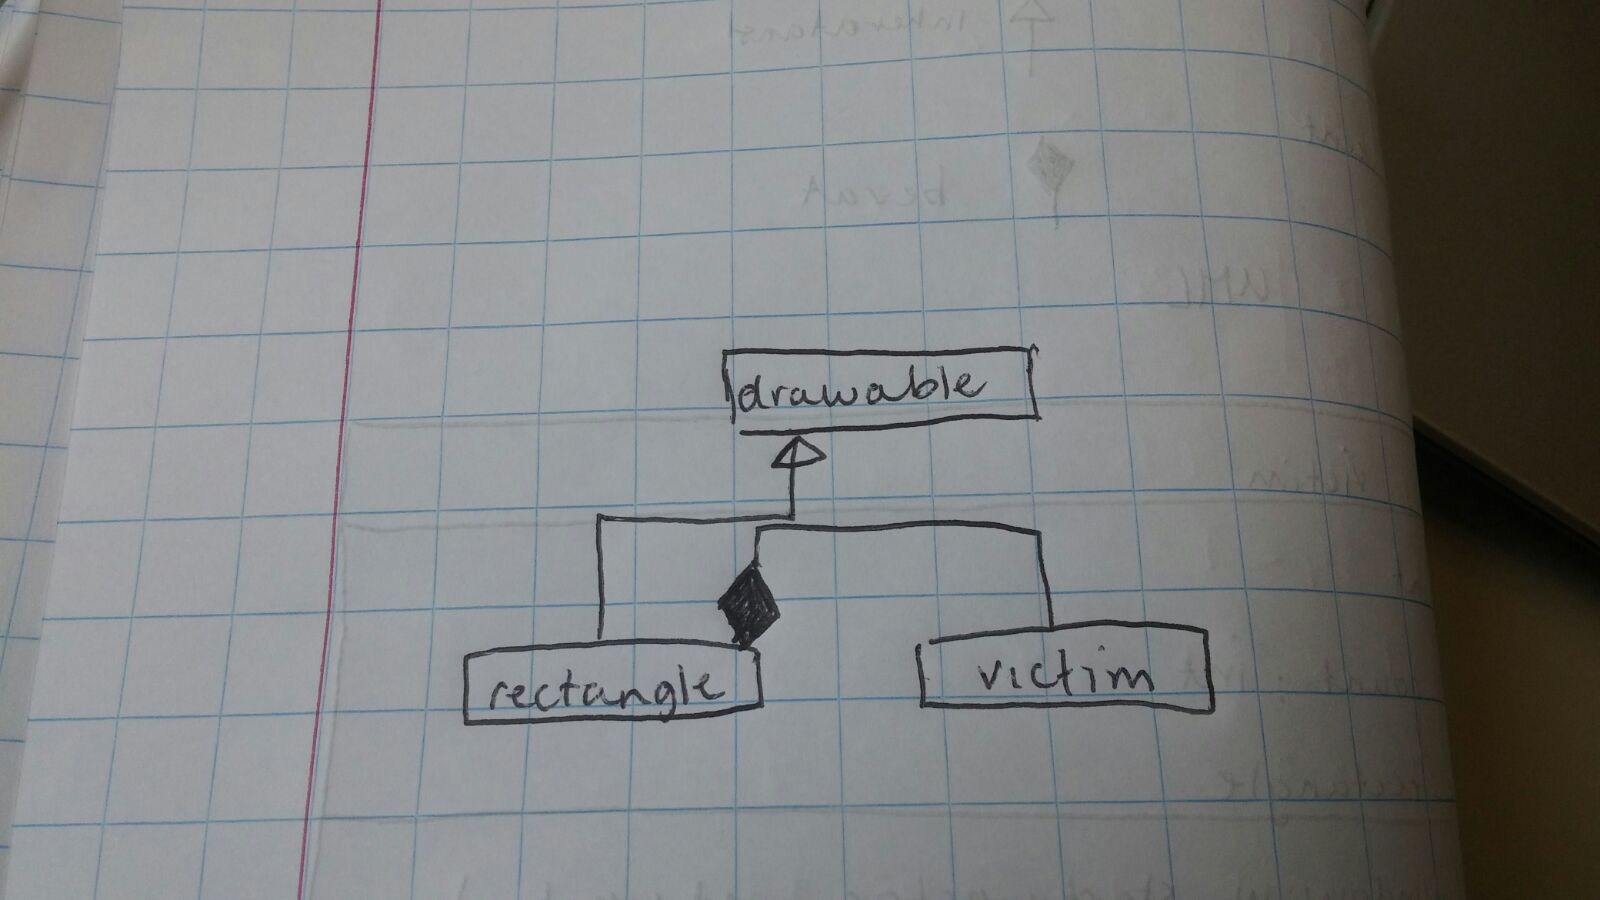 drawable
rectangle
victim